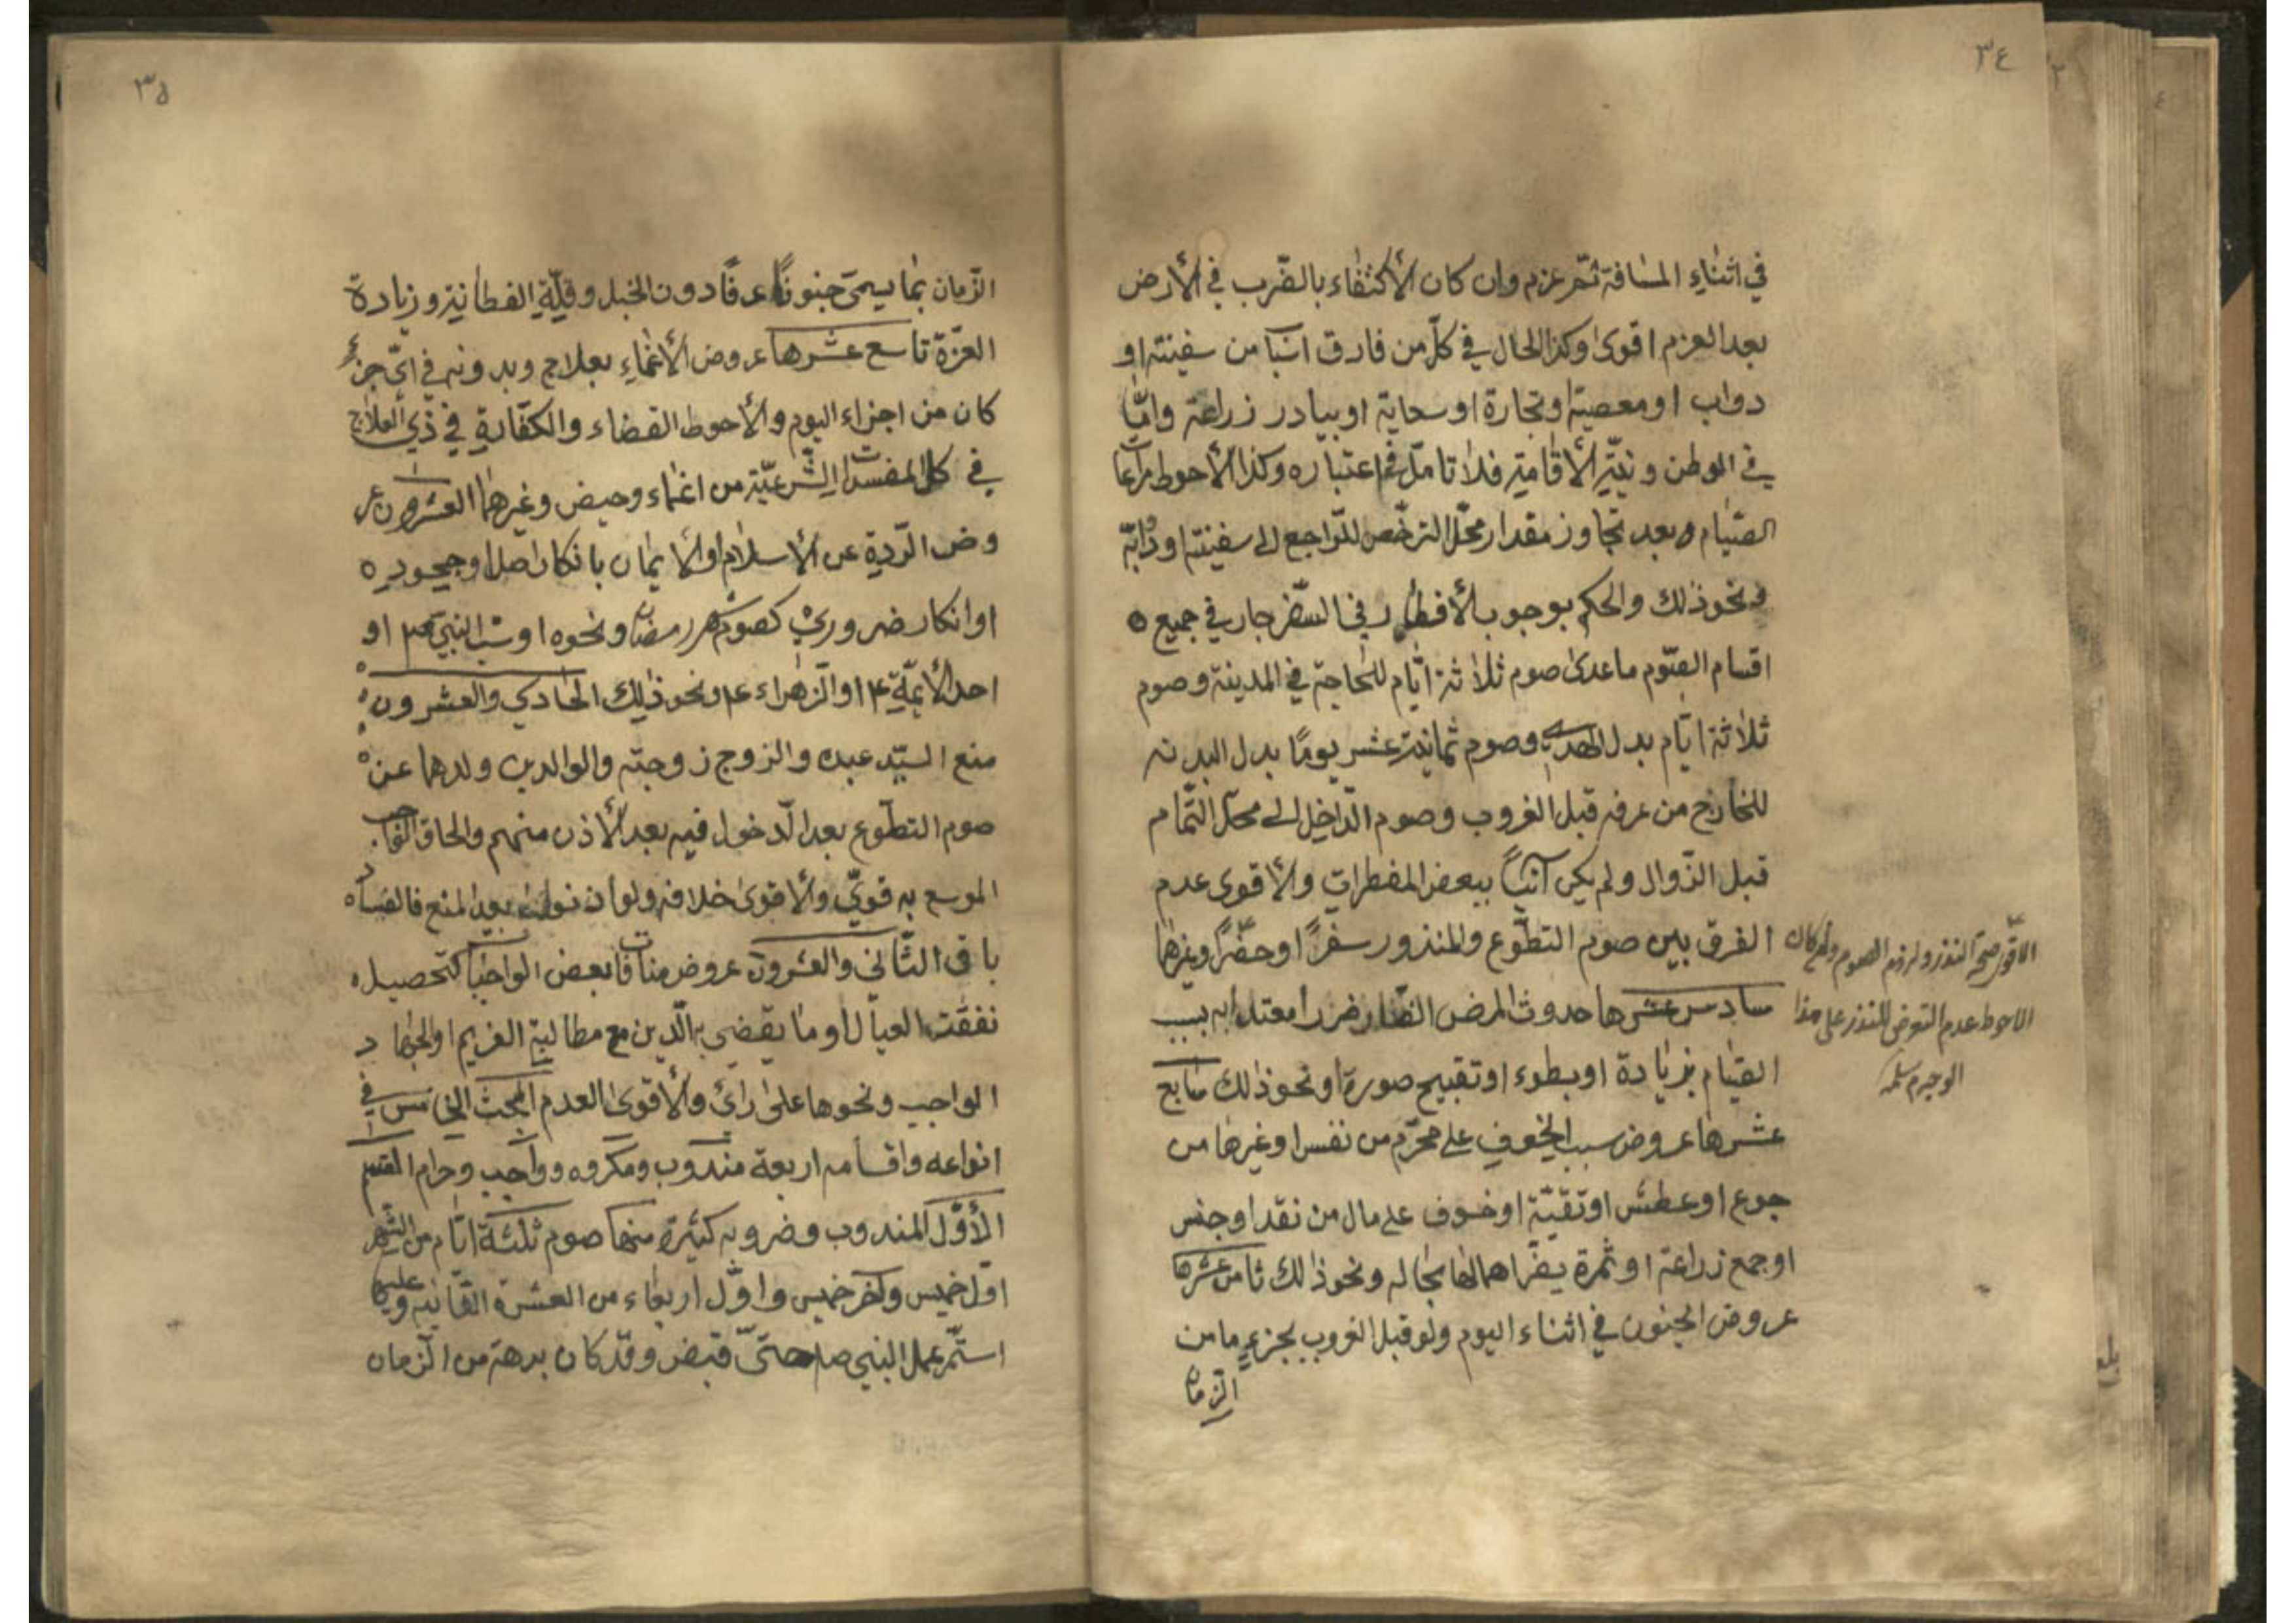 ٣٤
في اثناء المسافة ثمّ عزم وان كان الأكتفاء بالضّرب في الأرض
بعد العزم اقوى وكذا الحال في كلّ من فارق من سفينته او
دواب او معصية او تجارة او سحاية او بيادر زراعة وامّا
في الوطن ونيّة الأقامة فلا تامّل في اعتباره وكذا الأحوط مراعات
الصّيام وبعد تجاوز مقدار محّل الترخّص للرّاجع الى سفينته او دابّة
ونحو ذلك والحكم بوجوب الأفطار في السّفر جار في جميع ه
اقسام الصّوم ما عدى صوم ثلاثة ايّام للحاجة في المدينة وصوم
ثلاثة ايّام بدل الهدي وصوم ثمانية عشر يومًا بدل البدنه
للخارج من عرفه قبل الغروب وصوم الدّاخل الى محلّ التّمام
قبل الزّوال ولم يكن آتيًا ببعض المفطرات والأقوى عدم
الفرق بين صوم التطّوع والمنذور سفرًا او حضرًا وغيرها
سادس عشرها حدوث المرض الضّار ضررا معتدا به بسبب
الصّيام بزيادة او بطوء او تقبيح صورة او نحو ذلك سابع
عشرها عروض سبب الخوف على محرّم من نفس او غيرها من
جوع او عطش او تقيّة او خوف على مال من نقد او جنس
او جمع زراعة او ثمرة يضّر اهمالها بحاله ونحو ذلك ثامن عشرها
عروض الجنون في اثناء اليوم ولو قبل الغروب بجزء ما من
الزمان
الاقوى صحّة النذر ولزوم الصوم وان كان
الاحوط عدم التعرض للنذر على هذا
الوجه م سلمه
٣٥
الزّمان بما يسمّى جنونًا عرفًا دون الخبل وقلّة الفطانية وزيادة
العزّة تاسع عشرها عروض الأغماء بعلاج وبدونه في ايّ جزء
كان من اجزاء اليوم والأحوط القضاء والكفّارة في ذي العلاج
في كل المفسدات الشّرعيّة من اغماء وحيض وغيرهما العشرون عر
وض الرّدة عن الأسلام او الأيمان بانكار اصل او جحوده ه
او انكار ضروري كصوم شهر رمضان ونحوه او سبّ النبي ص او
احد الأئمّة ع او الزّهراء ع ونحو ذلك الحادي والعشرون
منع السيّد عبده والزوج زوجته والوالدين ولدهما عن
صوم التطّوع بعد الدّخول فيه بعد الأذن منهم والحاق الواجب
الموسع به قويّ والأقوى خلافه ولو اذن بعد المنع فالفساد
باق الثّاني والعشرون عروض مناف بعض الواجبات كتحصيل
نفقت العيال او ما يقضي به الّدين مع مطالبة الغريم او الجهاد
الواجب ونحوها على راي والأقوى العدم المبحث الخامس في
انواعه واقسامه اربعة مندوب ومكروه وواجب وحرام القسم
الأوّل المندوب وضروبه كثيرة منها صوم ثلثة ايّام من الشّهر
اوّل خميس وآخر خميس واوّل اربعاء من العشرة الثّانية وعليها
استمّر عمل النبي صلم حتىّ قبض وقد كان برهة من الزمان